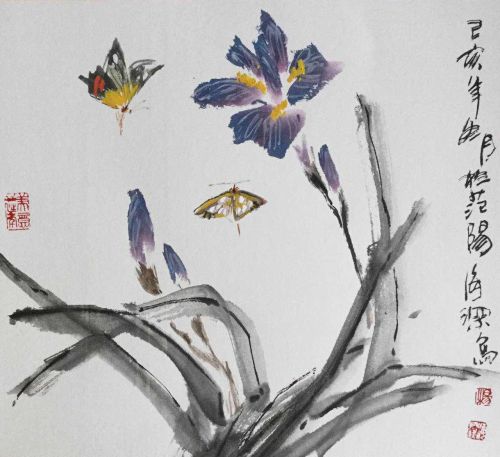 己亥年四月於范陽海深寫